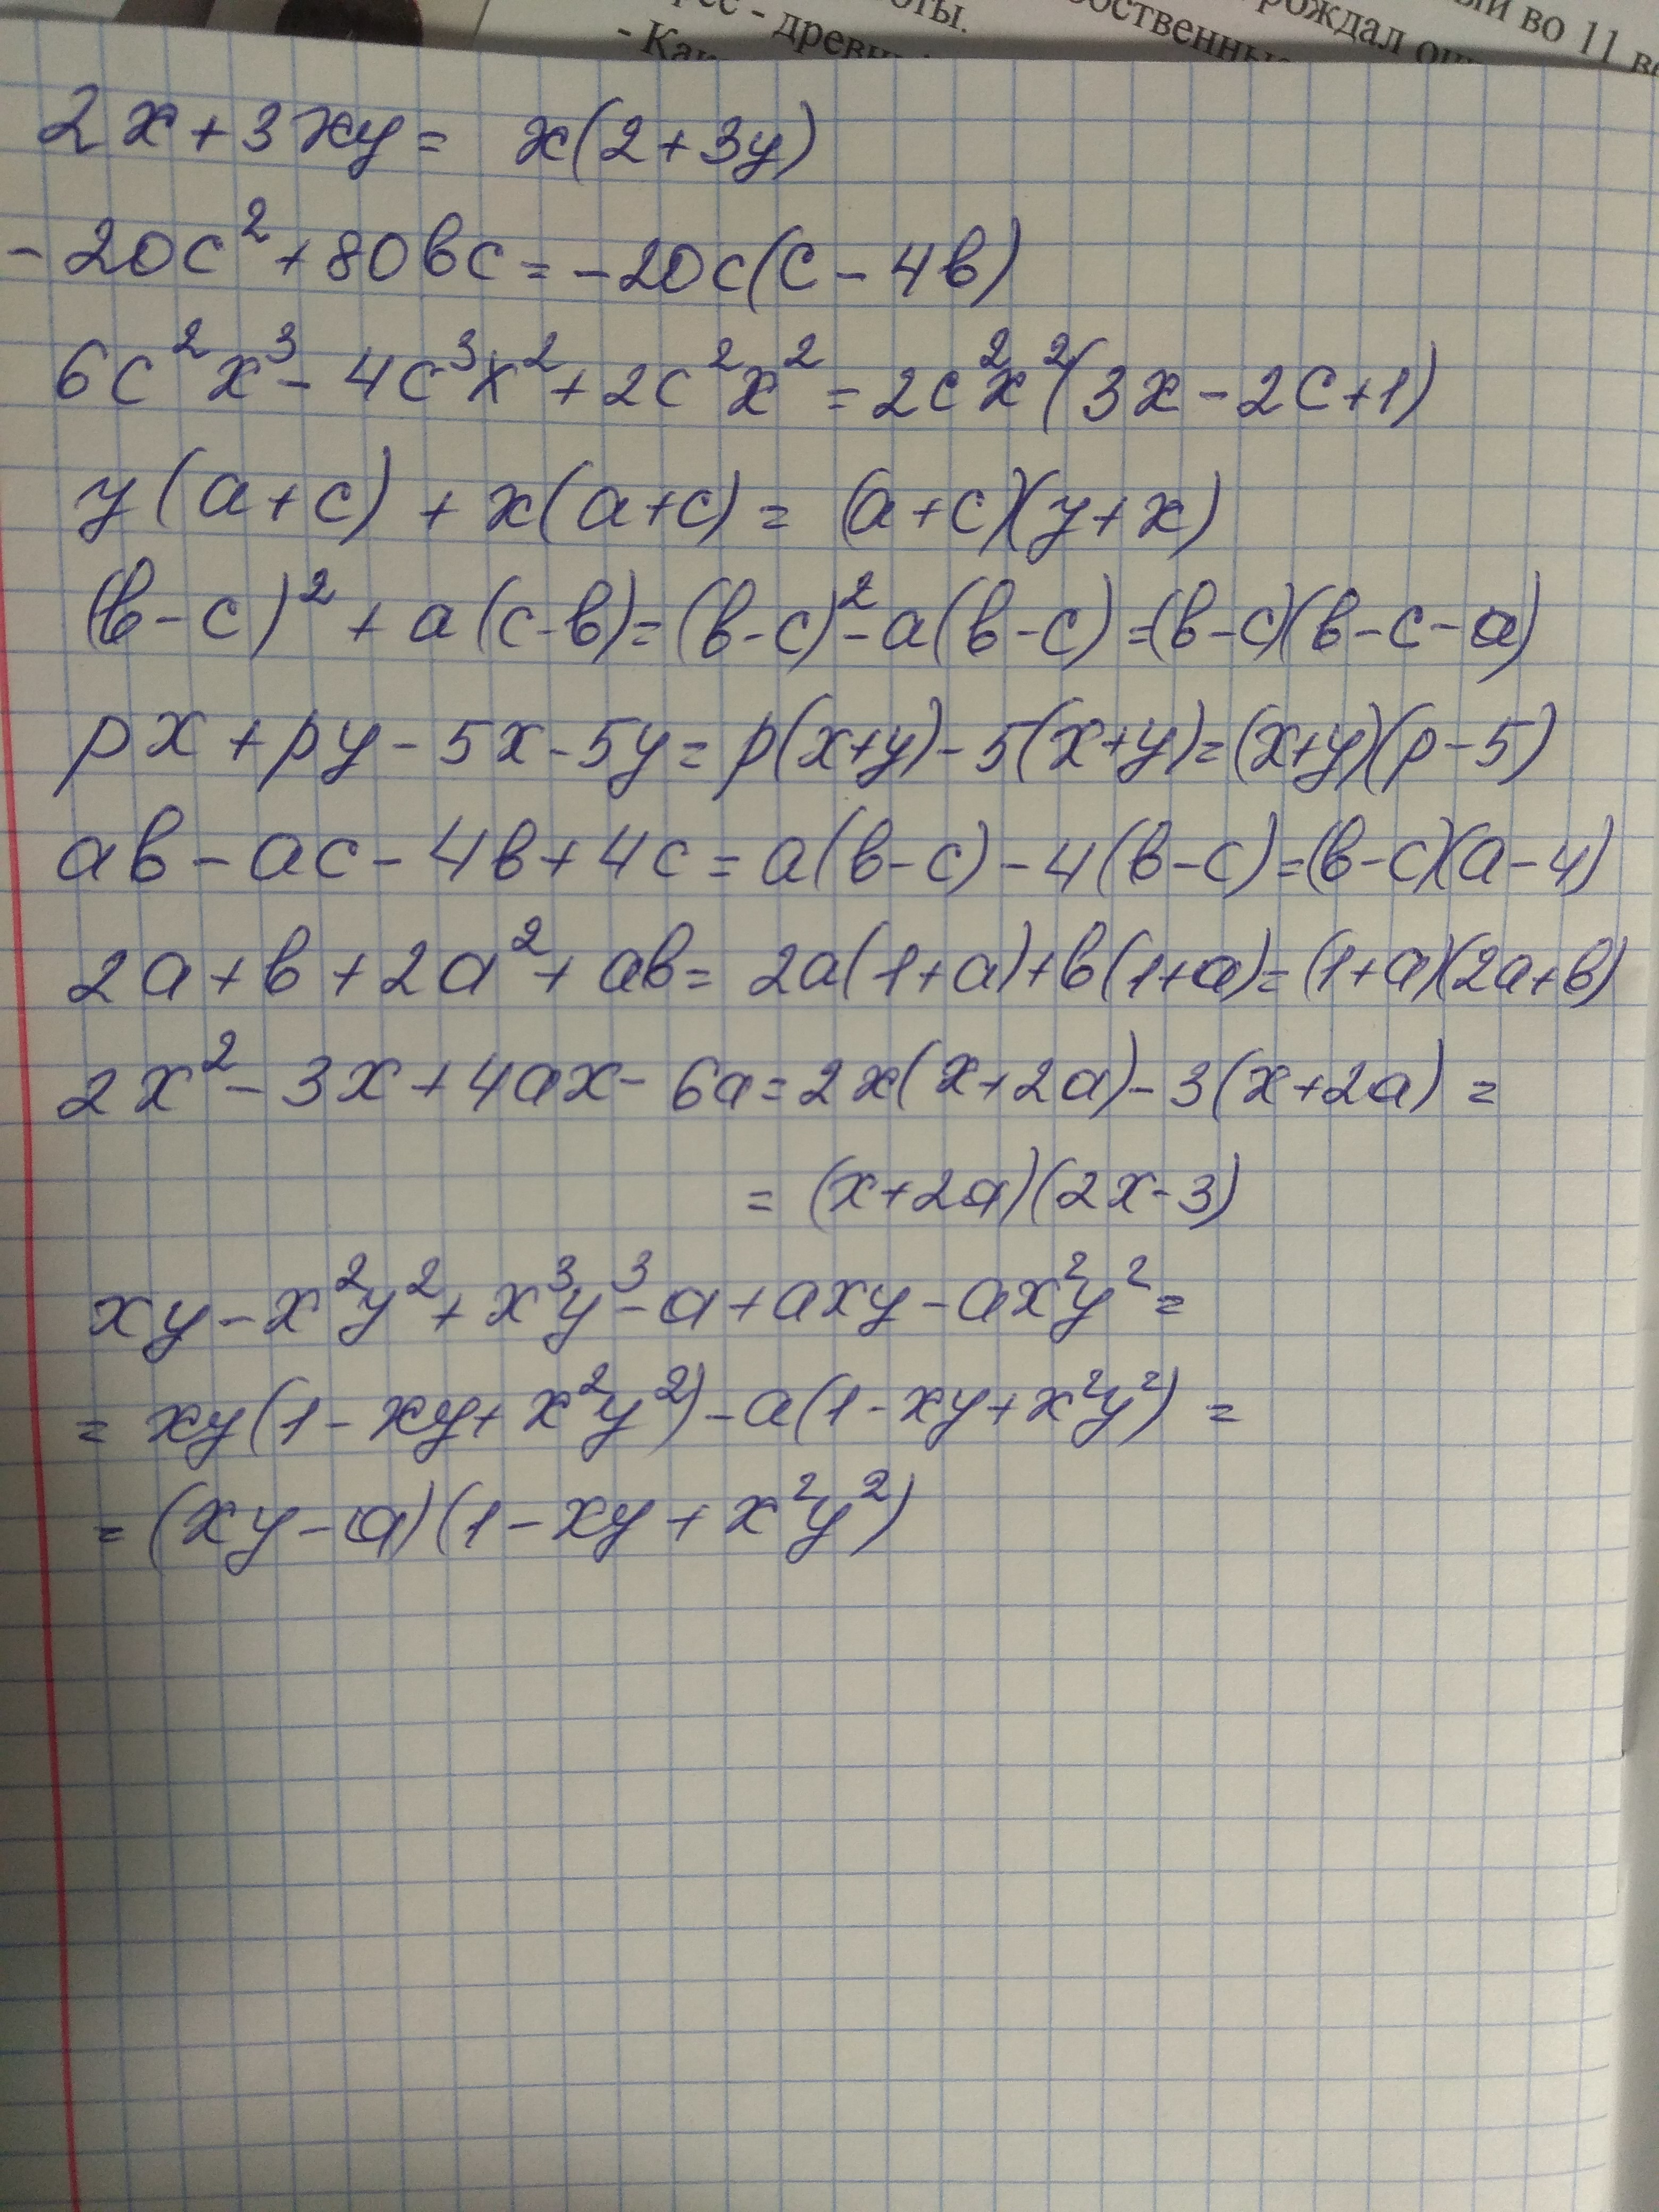 - древн
- Как
рождал
во 11
2x + 3xy = x(2 + 3y)
- 20c² + 80bc = - 20c(c - 4b)
6c²x³ - 4c³x² + 2c²x² = 2c²x²(3x - 2c + 1)
y(a + c) + x(a + c) = (a + c)(y + x)
(b - c)² + a(c - b) = (b - c)² - a(b - c) = (b - c)(b - c - a)
px + py - 5x - 5y = p(x + y) - 5(x + y) = (x + y)(p - 5)
ab - ac - 4b + 4c = a(b - c) - 4(b - c) = (b - c)(a - 4)
2a + b + 2a² + ab = 2a(1 + a) + b(1 + a) = (1 + a)(2a + b)
2x² - 3x + 4ax - 6a = 2x(x + 2a) - 3(x + 2a) =
= (x + 2a)(2x - 3)
xy - x²y² + x³y³ - a + axy - ax²y² =
= xy(1 - xy + x²y²) - a(1 - xy + x²y²) =
= (xy - a)(1 - xy + x²y²)